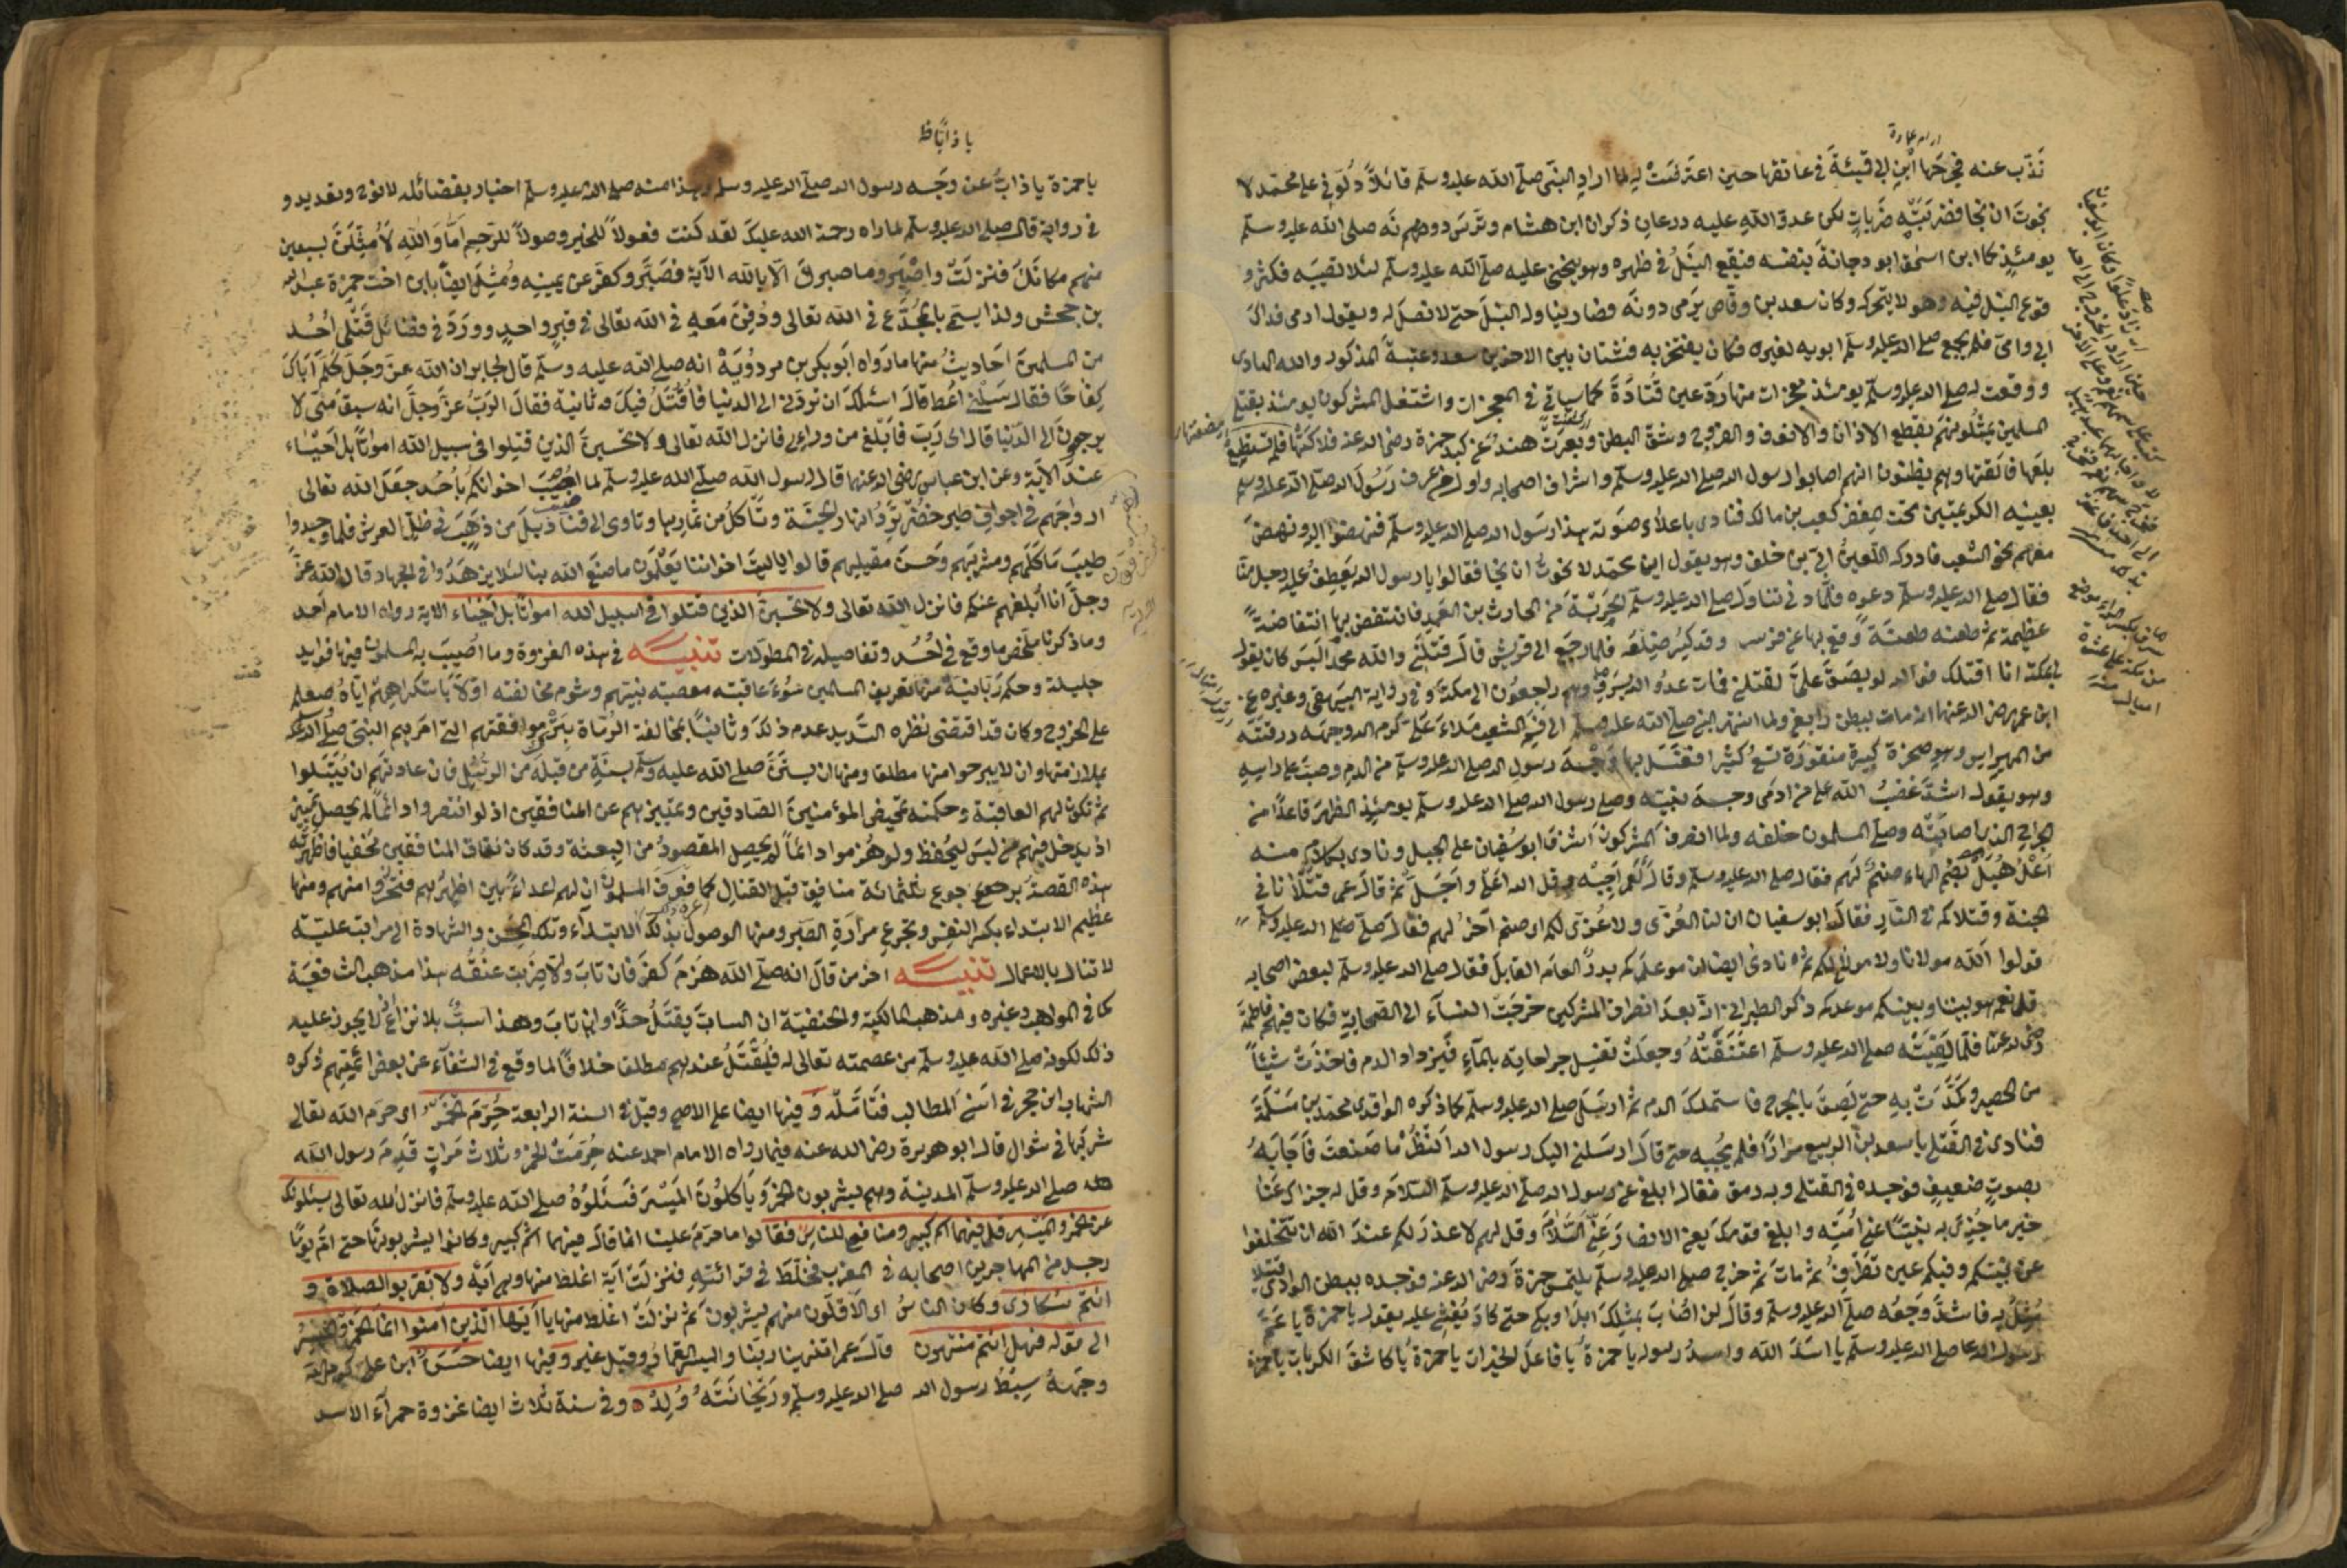 تذب عنه فجرحها ابن ابي قمئة في عاتقها حين اعترضت له لما اراد النبي صلى الله عليه وسلم قائلا دلوني على محمد لا
نجوت ان نجا فضربته ضربات لكن عدو الله عليه درعان ذكر ابن هشام وترس دونهم نه صلى الله عليه وسلم
يومئذ كما ابن اسحق ابو دجانة بنفسه فيقع النبل في ظهره وهو ينحني عليه صلى الله عليه وسلم لئلا تصيبه فكثر و
قوع النبل فيه وهو لا يتحرك وكان سعد بن وقاص يرمي دونه فصار يناوله النبل حتى لا نصل له ويقول ارمي فداك
ابي وامي فلم يجمع صلى الله عليه وسلم ابويه لغيره فكان يفتخر به فشتان بين الاخوين سعد وعتبة المذكور والله الهادي
ووقعت له صلى الله عليه وسلم يومئذ معجزات منها رد عين قتادة كما سياتي في المعجزات واشتغل المشركون يومئذ بقتلى
المسلمين يمثلون بهم بقطع الاذان والانوف والفروج وشق البطن وبقرت هند عن كبد حمزة رضي الله عنه فلاكتها فلم تستطع
بلعها فالقتها وهم يظنون انهم اصابوا رسول الله صلى الله عليه وسلم واشراف اصحابه واول من عرف رسول الله صلى الله عليه وسلم
بعينيه الكريمتين تحت المغفر كعب بن مالك فنادى باعلاء صوته هذا رسول الله صلى الله عليه وسلم فنهضوا اليه ونهض
معهم نحو الشعب فادركه اللعين ابي بن خلف وهو يقول اين محمد لا نجوت ان نجا فقالوا يا رسول الله يعطف عليه رجل منا
فقال صلى الله عليه وسلم دعوه فلما دنى تناول صلى الله عليه وسلم الحربة من الحارث بن الصمة فانتفض بها انتفاضة
عظيمة ثم طعنه طعنة وقع بها عن فرسه وقد كسر ضلعه فلما رجع الى قريش قال قتلني والله محمد اليس كان يقول
بمكة انا اقتلك فوالله لو بصق علي لقتلني فمات عدو الله بسرف وهم راجعون الى مكة وفي رواية البيهقي وغيره عن
ابن عمر رضي الله عنهما انه مات ببطن رابغ ولما انتهى النبي صلى الله عليه وسلم الى فم الشعب ملاء علي كرم الله وجهه درقته
من المهراس وهو صخرة كبيرة منقورة تسع كثيرا فغسل بها وجه رسول الله صلى الله عليه وسلم من الدم وصب على راسه
وهو يقول اشتد غضب الله على من ادمى وجه نبيه وصلى رسول الله صلى الله عليه وسلم يومئذ الظهر قاعدا من
الجراح الذي اصابته وصلى المسلمون خلفه ولما انصرف المشركون اشرف ابو سفيان على الجبل ونادى بكلام منه
اعل هبل بضم الهاء صنم لهم فقال صلى الله عليه وسلم وقال لعمر اجبه وقل الله اعلى واجل ثم قال عمر قتلانا في
الجنة وقتلاكم في النار فقال ابو سفيان ان لنا العزى ولا عزى لكم اي صنم اخر لهم فقال صلى الله عليه وسلم
قولوا الله مولانا ولا مولى لكم ثم نادى ايضا ان موعدكم بدر العام القابل فقال صلى الله عليه وسلم لبعض اصحابه
قل نعم هو بيننا وبينكم موعدكم ذكر الطبراني انه بعد انصراف المشركين خرجت النساء الى الصحابة فكان فيهم فاطمة
رضي الله عنها فلما لقيته صلى الله عليه وسلم اعتنقته وجعلت تغسل جراحاته بالماء فيزداد الدم فاخذت شيئا
من الحصير وكمدت به حتى لصق بالجرح فاستمسك الدم ثم ارسل صلى الله عليه وسلم كما ذكره الواقدي محمد بن مسلمة
فنادى في القتلى يا سعد بن الربيع مرارا فلم يجبه حتى قال ارسلني اليك رسول الله انظر ما صنعت فاجابه
بصوت ضعيف فوجده في القتلى وبه رمق فقال ابلغ عني رسول الله صلى الله عليه وسلم السلام وقل له جزاك الله عنا
خير ما جزي به نبيا عن امته وابلغ قومك يعني الانصار عني السلام وقل لهم لا عذر لكم عند الله ان يخلصوا
عن نبيكم وفيكم عين تطرف ثم مات ثم خرج صلى الله عليه وسلم يلتمس حمزة رضي الله عنه فوجده ببطن الوادي قتيلا
مثل به فاشتد وجعه صلى الله عليه وسلم وقال لن اصاب بمثلك ابدا وبكى حتى كاد يغشى عليه يقول يا حمزة يا عم
رسول الله صلى الله عليه وسلم يا اسد الله واسد رسوله يا حمزة يا فاعل الخيرات يا حمزة يا كاشف الكربات يا حمزة
يا حمزة يا ذاب عن وجه رسول الله صلى الله عليه وسلم وهذا منه صلى الله عليه وسلم اخبار بفضائله لا نوح وتعديد و
في رواية قال صلى الله عليه وسلم لما راه رحمة الله عليك لقد كنت فعولا للخير وصولا للرحم اما والله لامثلن بسبعين
منهم مكانك فنزلت واصبر وما صبرك الا بالله الاية فصبر وكفر عن يمينه ومثل ايضا بابن اخت حمزة عبد الله
بن جحش ولذا يسمى بالمجدع في الله تعالى ودفن معه في الله تعالى في قبر واحد وورد في فضائل قتلى احد
من المسلمين احاديث منها ما رواه ابو بكر بن مردويه انه صلى الله عليه وسلم قال لجابر ان الله عز وجل كلم اباك
كفاحا فقال سلني اعط قال اسئلك ان تردني الى الدنيا فاقتل فيك ثانية فقال الرب عز وجل انه سبق مني لا
يرجعون الى الدنيا قال اي رب فابلغ من ورائي فانزل الله تعالى ولا تحسبن الذين قتلوا في سبيل الله امواتا بل احياء
عند الاية وعن ابن عباس رضي الله عنهما قال رسول الله صلى الله عليه وسلم لما اصيب اخوانكم باحد جعل الله تعالى
ارواحهم في اجواف طير خضر ترد انهار الجنة وتاكل من ثمارها وتاوى الى قناديل من ذهب في ظل العرش فلما وجدوا
طيب ماكلهم ومشربهم وحسن مقيلهم قالوا يا ليت اخواننا يعلمون ما صنع الله بنا لئلا يزهدوا في الجهاد قال الله عز
وجل انا ابلغهم عنكم فانزل الله تعالى ولا تحسبن الذين قتلوا في سبيل الله امواتا بل احياء الاية رواه الامام احمد
وما ذكرنا ملخص ما وقع في احد وتفاصيله في المطولات تنبيه في هذه الغزوة وما اصيب به المسلمون فيها فوايد
جليلة وحكم ربانية منها تعريف المسلمين سوء عاقبة معصية نبيهم وشوم مخالفته اولا باستكراههم اياه صلعم
على الخروج وكان قد اقتضى نظره السديد عدم ذلك وثانيا بمخالفة الرماة بترك موافقتهم التي امرهم النبي صلى الله عليه
بملازمتها وان لا يبرحوا منها مطلقا ومنها ان يسن صلى الله عليه وسلم بسنة من قبله من الرسل فان عادتهم ان يبتلوا
ثم تكون لهم العاقبة وحكمته تمحيض المؤمنين الصادقين وتمييزهم عن المنافقين اذ لو انتصروا دائما لم يحصل تمييز
اذ يدخل فيهم من ليس ليحفظ ولو هزموا دائما لم يحصل المقصود من البعثة وقد كان نفاق المنافقين مخفيا فاظهرته
هذه القصة برجوع ثلثمائة منافق قبل القتال كما فعرف المسلمون ان لهم اعداء بين اظهرهم فتحرزوا منهم ومنها
عظيم الابتداء بكسر النفس وتجرع مرارة الصبر ومنها الوصول بذلك الابتداء وتلك المحن والشهادة الى مراتب علية
لا تنال بالاعمال تنبيه اخر من قال انه صلى الله هزم كفر فان تاب والا ضربت عنقه هذا مذهب الشافعية
كما في المواهب وغيره ومذهب المالكية والحنفية ان الساب يقتل حدا وان تاب وهذا سب بلا نزاع لا يجوز عليه
ذلك لكونه صلى الله عليه وسلم من عصمته تعالى له فليقتل عندهم مطلقا خلافا لما وقع في الشفاء عن بعض ائمتهم ذكره
الشهاب ابن حجر في اسنى المطالب فتامله وفيها ايضا على الاصح وقيل في السنة الرابعة حرم الخمر اي حرم الله تعالى
شربها في شوال قال ابو هريرة رضي الله عنه فيما رواه الامام احمد عنه حرمت الخمر ثلاث مرات قدم رسول الله
صلى الله عليه وسلم المدينة وهم يشربون الخمر وياكلون الميسر فسئلوه صلى الله عليه وسلم فانزل الله تعالى يسئلونك
عن الخمر والميسر قل فيهما اثم كبير ومنافع للناس فقالوا ما حرم علينا انما قال فيهما اثم كبير وكانوا يشربونها حتى امّ يوما
رجل من المهاجرين اصحابه في المغرب فخلط في قرائته فنزلت آية اغلظ منها وهي آية ولا تقربوا الصلاة و
انتم سكارى وكان الناس او الاقلون منهم يشربون ثم نزلت اغلظ منها يا ايها الذين آمنوا انما الخمر والميسر
الى قوله فهل انتم منتهون قال عمر انتهينا ربنا وقيل غير وفيها ايضا حسن ابن علي كرم الله
وجهه سبط رسول الله صلى الله عليه وسلم وريحانته ولد وفي سنة ثلاث ايضا غزوة حمراء الاسد